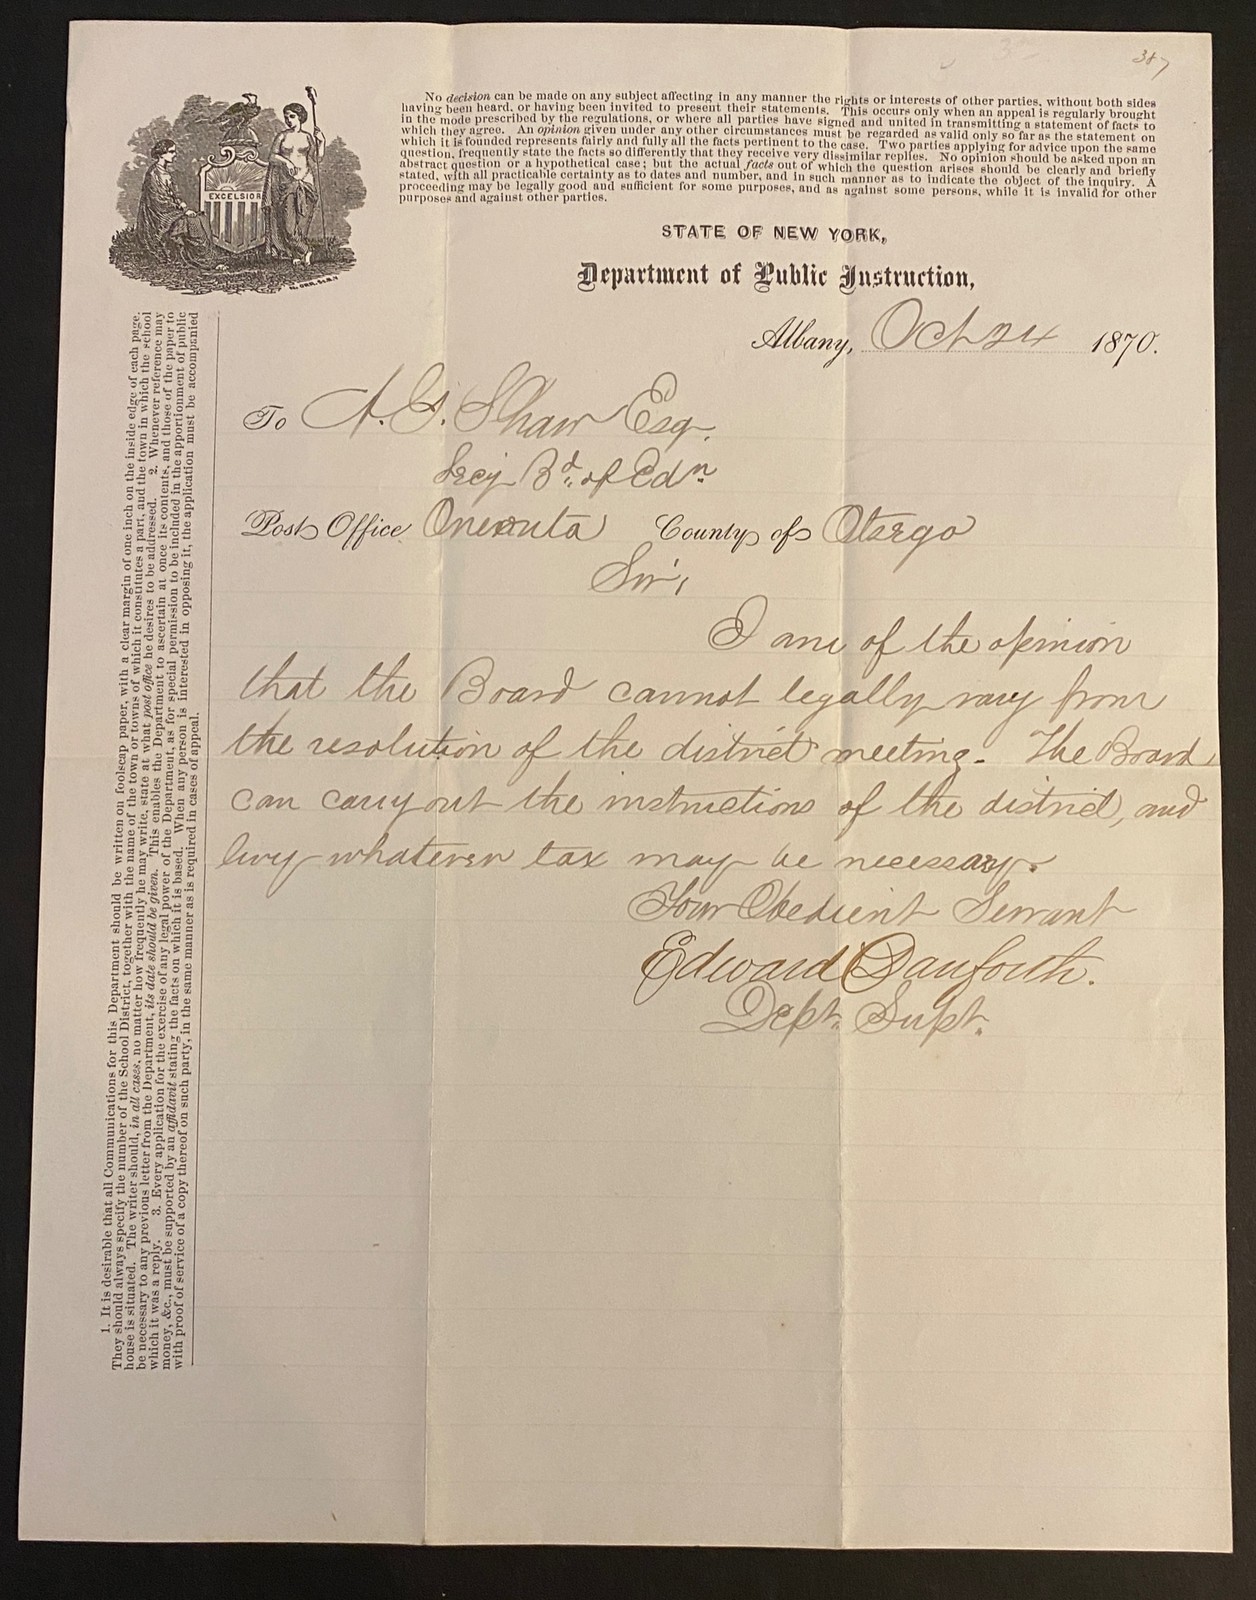 387
No decision can be made on any subject affecting in any manner the rights or interests of other parties, without both sides
having been heard, or having been invited to present their statements. This occurs only when an appeal is regularly brought
in the mode prescribed by the regulations, or where all parties have signed and united in transmitting a statement of facts to
which they agree. An opinion given under any other circumstances must be regarded as valid only so far as the statement on
which it is founded represents fairly and fully all the facts pertinent to the case. Two parties applying for advice upon the same
question, frequently state the facts so differently that they receive very dissimilar replies. No opinion should be asked upon an
abstract question or a hypothetical case; but the actual facts out of which the question arises should be clearly and briefly
stated, with all practicable certainty as to dates and number, and in such manner as to indicate the object of the inquiry. A
proceeding may be legally good and sufficient for some purposes, and as against some persons, while it is invalid for other
purposes and against other parties.
EXCELSIOR
STATE OF NEW YORK,
Department of Public Instruction,
Albany, Oct 24 1870.
To A. G. Shaw Esq.
Secy Bd. of Edn
Post Office Oneonta County of Otsego
Sir,
I am of the opinion
that the Board cannot legally vary from
the resolution of the district meeting. The Board
can carry out the instructions of the district, and
levy whatever tax may be necessary.
Your Obedient Servant
Edward Danforth.
Dept. Supt.
1. It is desirable that all Communications for this Department should be written on foolscap paper, with a clear margin of one inch on the inside edge of each page.
They should always specify the number of the School District, together with the name of the town or towns of which it constitutes a part, and the town in which the school
house is situated. The writer should, in all cases, no matter how frequently he may write, state at what post office he desires to be addressed. 2. Whenever reference may
be necessary to any previous letter from the Department, its date should be given. This enables the Department to ascertain at once its contents, and those of the paper to
which it was a reply. 3. Every application for the exercise of any legal power of the Department, as for special permission to be included in the apportionment of public
money, &c., must be supported by an affidavit stating the facts on which it is based. When any person is interested in opposing it, the application must be accompanied
with proof of service of a copy thereof on such party, in the same manner as is required in cases of appeal.